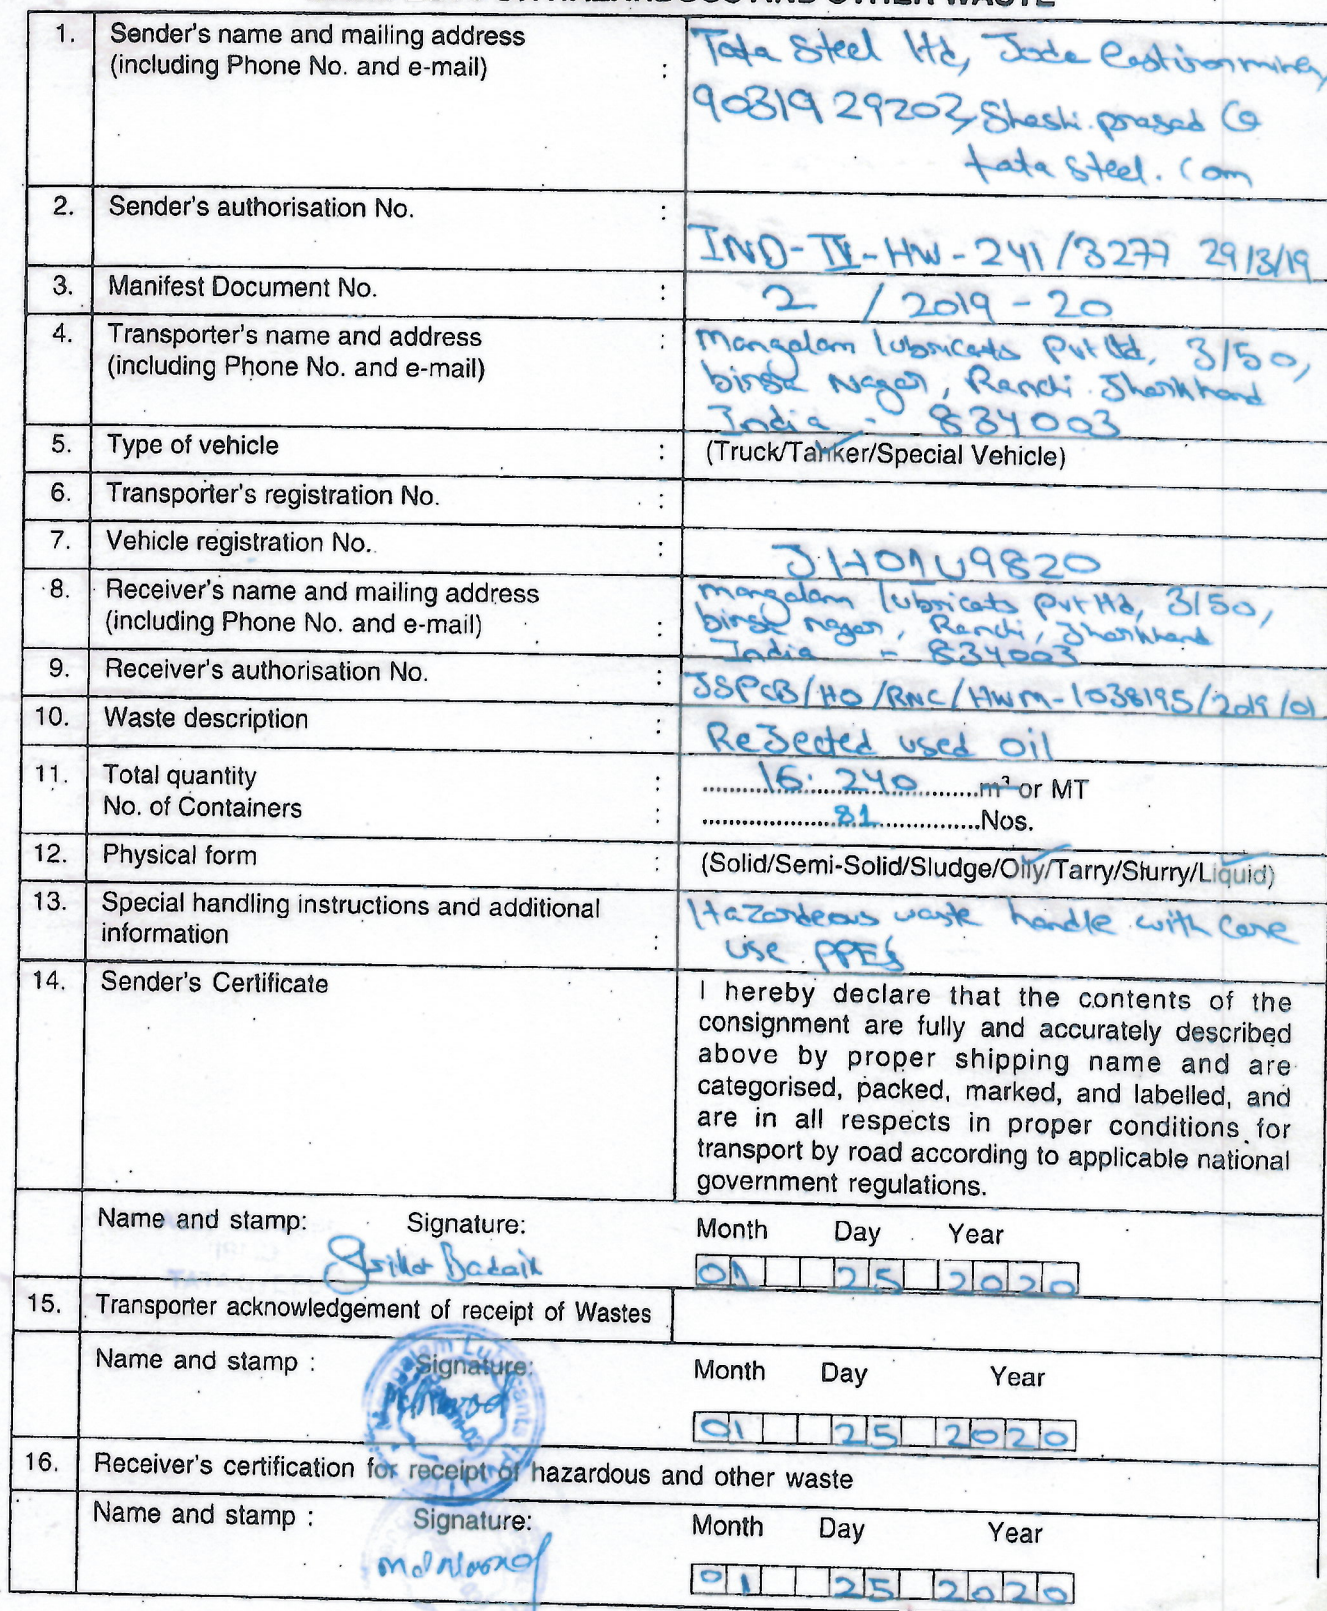 1. Sender's name and mailing address
(including Phone No. and e-mail) :
Tata Steel ltd, Joda East iron mine,
9031929202, Shashi.prasad @
tata steel.com
2. Sender's authorisation No. :
IND-IV-HW-241/3277 29/3/19
3. Manifest Document No. :
2 / 2019-20
4. Transporter's name and address :
(including Phone No. and e-mail)
Mangalam lubricats Pvt ltd, 3/50,
birsa Nagar, Ranchi Jharkhand
India - 834003
5. Type of vehicle : (Truck/Tanker/Special Vehicle)
6. Transporter's registration No. :
7. Vehicle registration No. :
JH01U9820
8. Receiver's name and mailing address
(including Phone No. and e-mail) :
mangalam lubricats pvt ltd, 3/50,
birsa nagar, Ranchi, Jharkhand
India - 834003
9. Receiver's authorisation No. :
JSPCB/HO/RNC/HWM-1038195/2019/01
10. Waste description :
ReJected used oil
11. Total quantity : 16.240 m³ or MT
No. of Containers : 81 Nos.
12. Physical form : (Solid/Semi-Solid/Sludge/Oily/Tarry/Slurry/Liquid)
13. Special handling instructions and additional
information :
Hazardeous waste handle with care
use PPE's
14. Sender's Certificate
I hereby declare that the contents of the
consignment are fully and accurately described
above by proper shipping name and are
categorised, packed, marked, and labelled, and
are in all respects in proper conditions for
transport by road according to applicable national
government regulations.
Name and stamp: Signature: Month Day Year
Badaik 01 25 2020
15. Transporter acknowledgement of receipt of Wastes
Name and stamp : Signature: Month Day Year
01 25 2020
16. Receiver's certification for receipt of hazardous and other waste
Name and stamp : Signature: Month Day Year
01 25 2020